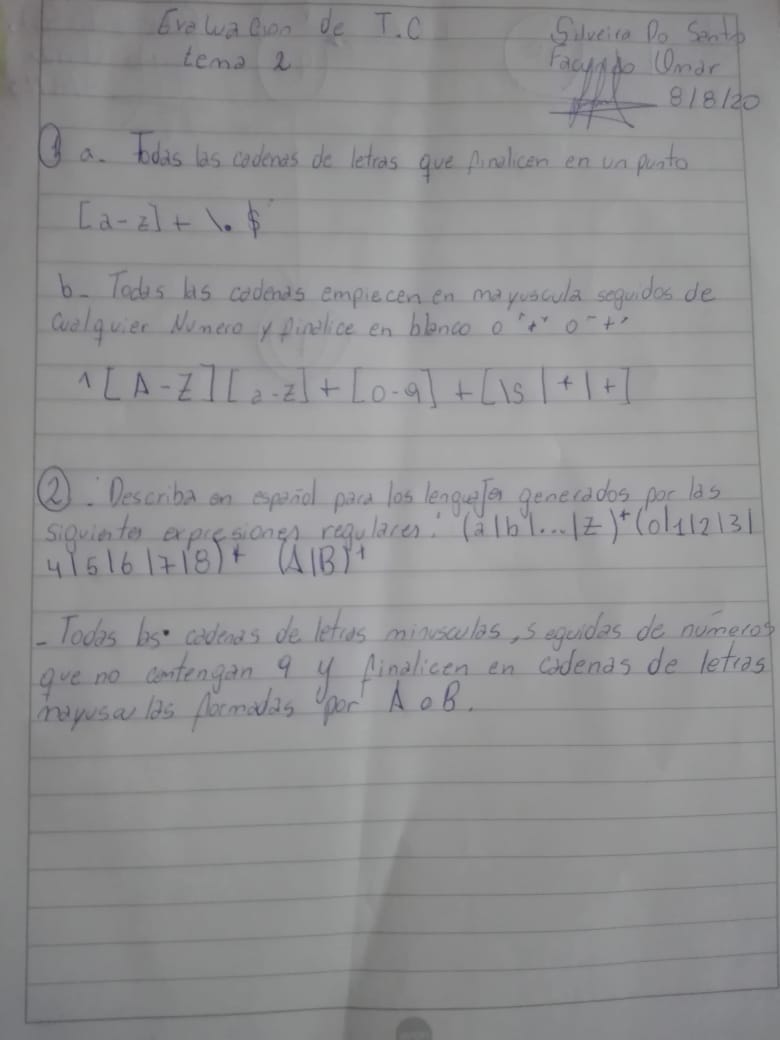 Evaluacion de T.C
tema 2
Silveira Do Santo
Facundo Omar
8/8/20
① a. Todas las cadenas de letras que finalicen en un punto
[a-z]+ \. $
b- Todas las cadenas empiecen en mayuscula seguidos de
cualquier Numero y finalice en blanco o "+" o "+"
^[A-Z][a-z]+[0-9]+[\s|+|+]
② . Describa en español para los lenguajes generados por las
siguientes expresiones regulares: (a|b|...|z)+(0|1|2|3|
4|5|6|7|8)+ (A|B)+
- Todas las cadenas de letras minusculas, seguidas de numeros
que no contengan 9 y finalicen en cadenas de letras
mayusculas formadas por A o B.